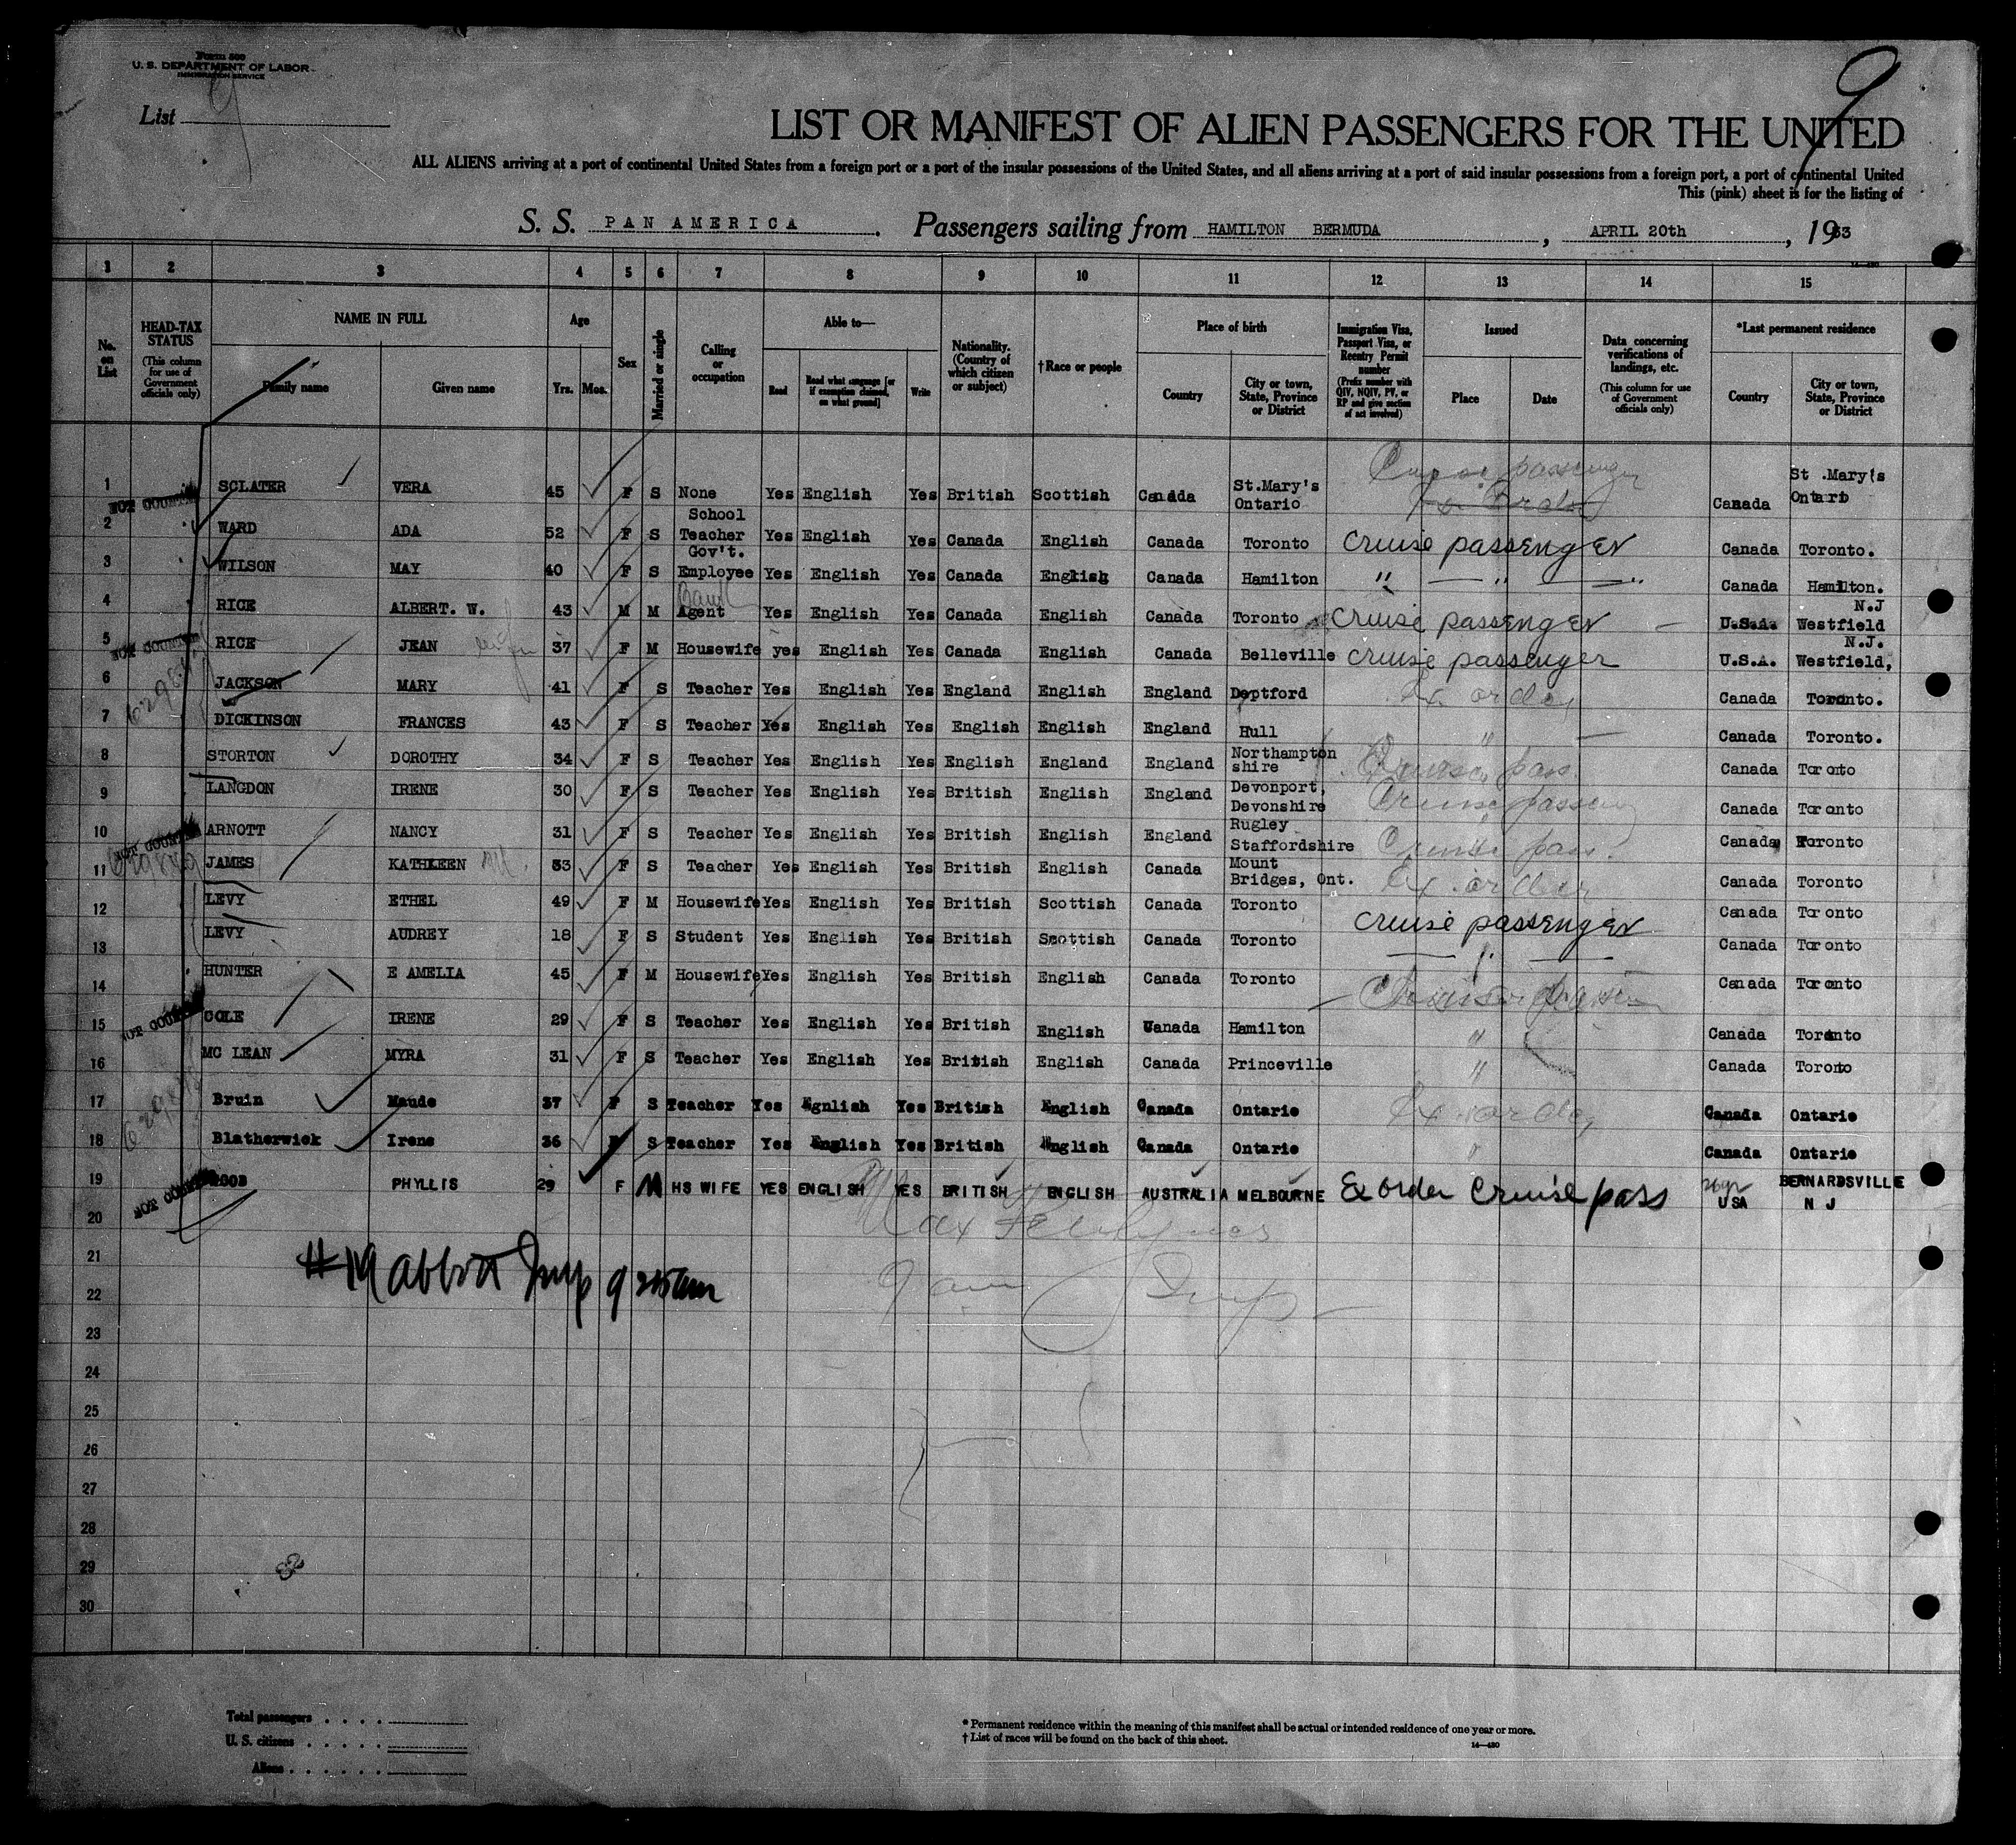 Form 500
U. S. DEPARTMENT OF LABOR
IMMIGRATION SERVICE
List 9
9
LIST OR MANIFEST OF ALIEN PASSENGERS FOR THE UNITED
ALL ALIENS arriving at a port of continental United States from a foreign port or a port of the insular possessions of the United States, and all aliens arriving at a port of said insular possessions from a foreign port, a port of continental United
This (pink) sheet is for the listing of
S. S. PAN AMERICA. Passengers sailing from HAMILTON BERMUDA, APRIL 20th, 1933
1 2 3 4 5 6 7 8 9 10 11 12 13 14 15
No. on List
HEAD-TAX STATUS (This column for use of Government officials only)
NAME IN FULL
Family name Given name
Age
Yrs. Mos.
Sex
Married or single
Calling or occupation
Able to—
Read Read what language [or if exemption claimed, on what ground] Write
Nationality. (Country of which citizen or subject)
†Race or people
Place of birth
Country City or town, State, Province or District
Immigration Visa, Passport Visa, or Reentry Permit number (Prefix number with QIV, NQIV, PV, or RP and give section of act involved)
Issued
Place Date
Data concerning verifications of landings, etc. (This column for use of Government officials only)
*Last permanent residence
Country City or town, State, Province or District
1 NOT COUNTED SCLATER VERA 45 F S None Yes English Yes British Scottish Canada St.Mary's Ontario Canada St .Mary's Ontario
2 WARD ADA 52 F S School Teacher Yes English Yes Canada English Canada Toronto cruise passenger Canada Toronto.
3 WILSON MAY 40 F S Gov't. Employee Yes English Yes Canada English Canada Hamilton " — " — " Canada Hamilton.
4 RICE ALBERT. W. 43 M M Agent Yes English Yes Canada English Canada Toronto cruise passenger U.S.A. Westfield N.J
5 NOT COUNTED RICE JEAN 37 F M Housewife yes English Yes Canada English Canada Belleville cruise passenger U.S.A. Westfield, N.J.
6 JACKSON MARY 41 F S Teacher Yes English Yes England English England Deptford Ex order Canada Toronto.
7 DICKINSON FRANCES 43 F S Teacher Yes English Yes English English England Hull " Canada Toronto.
8 STORTON DOROTHY 34 F S Teacher Yes English Yes English England England Northampton shire Cruise pass. Canada Toronto
9 LANGDON IRENE 30 F S Teacher Yes English Yes British English England Devonport, Devonshire Cruise passeng Canada Toronto
10 NOT COUNTED ARNOTT NANCY 31 F S Teacher Yes English Yes British English England Rugley Staffordshire Cruise pass. Canada Toronto
11 JAMES KATHLEEN 33 F S Teacher Yes English Yes British English Canada Mount Bridges, Ont. Ex order Canada Toronto
12 LEVY ETHEL 49 F M Housewife Yes English Yes British Scottish Canada Toronto cruise passenger Canada Toronto
13 LEVY AUDREY 18 F S Student Yes English Yes British Scottish Canada Toronto — " — Canada Toronto
14 HUNTER E AMELIA 45 F M Housewife Yes English Yes British English Canada Toronto Canada Toronto
15 NOT COUNTED COLE IRENE 29 F S Teacher Yes English Yes British English Canada Hamilton " Canada Toronto
16 MC LEAN MYRA 31 F S Teacher Yes English Yes British English Canada Princeville " Canada Toronto
17 Bruin Maude 37 F S Teacher Yes Egnlish Yes British English Canada Ontario Ex order Canada Ontario
18 Blatherwick Irene 36 F S Teacher Yes English Yes British English Canada Ontario " Canada Ontario
19 NOT COUNTED PHYLLIS 29 F M HS WIFE YES ENGLISH YES BRITISH ENGLISH AUSTRALIA MELBOURNE Ex order Cruise pass USA BERNARDSVILLE N J
20
21
#19 abbott Insp 9 25 am
22
23
24
25
26
27
28
29
30
Total passengers . . . .
U. S. citizens . . . . .
Aliens . . . . . .
* Permanent residence within the meaning of this manifest shall be actual or intended residence of one year or more.
† List of races will be found on the back of this sheet.
14—430